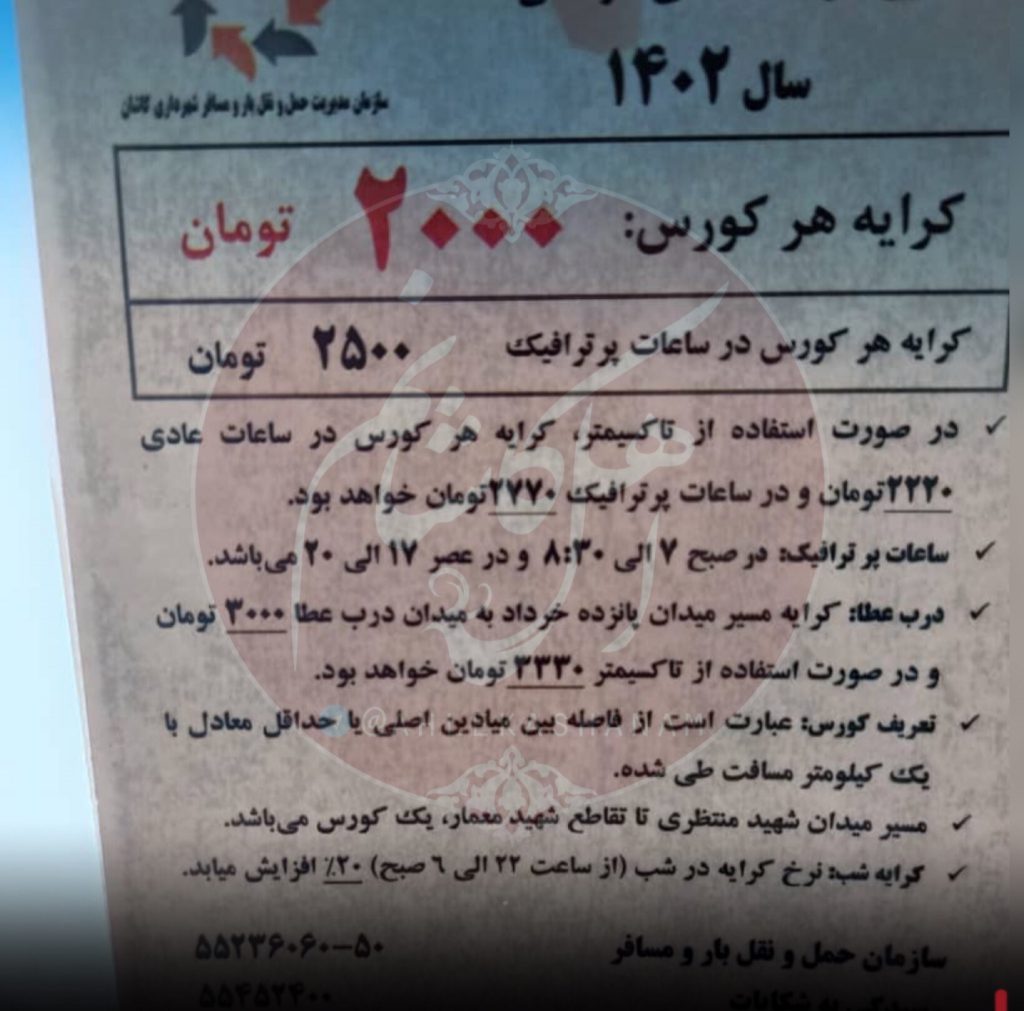 سال ۱۴۰۲
سازمان مدیریت حمل و نقل بار و مسافر شهرداری کاشان
کرایه هر کورس: ۲۰۰۰ تومان
کرایه هر کورس در ساعات پر ترافیک ۲۵۰۰ تومان
✓ در صورت استفاده از تاکسیمتر، کرایه هر کورس در ساعات عادی
۲۲۲۰تومان و در ساعات پرترافیک ۲۷۷۰تومان خواهد بود.
✓ ساعات پر ترافیک: در صبح ۷ الی ۸:۳۰ و در عصر ۱۷ الی ۲۰ می‌باشد.
✓ درب عطا: کرایه مسیر میدان پانزده خرداد به میدان درب عطا ۳۰۰۰ تومان
و در صورت استفاده از تاکسیمتر ۳۳۳۰ تومان خواهد بود.
✓ تعریف کورس: عبارت است از فاصله بین میادین اصلی یا حداقل معادل با
یک کیلومتر مسافت طی شده.
✓ مسیر میدان شهید منتظری تا تقاطع شهید معمار، یک کورس می‌باشد.
✓ کرایه شب: نرخ کرایه در شب (از ساعت ۲۲ الی ۶ صبح) ۲۰٪ افزایش میابد.
سازمان حمل و نقل بار و مسافر ۵۵۲۳۶۰۶۰-۵۰
رسیدگی به شکایات ۵۵۴۵۲۴۰۰